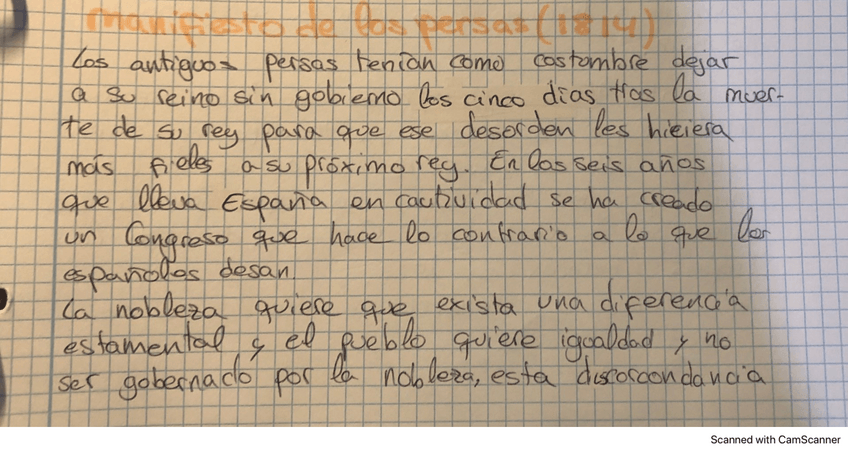 manifiesto de los persas (1814)
Los antiguos persas tenían como costombre dejar
a su reino sin gobierno los cinco días tras la muer-
te de su rey para que ese desorden les hiciera
más fieles a su próximo rey. En los seis años
que lleva España en cautividad se ha creado
un Congreso que hace lo contrario a lo que los
españoles desan.
La nobleza quiere que exista una diferencia
estamental y el pueblo quiere igualdad y no
ser gobernado por la nobleza, esta discorcondancia
Scanned with CamScanner